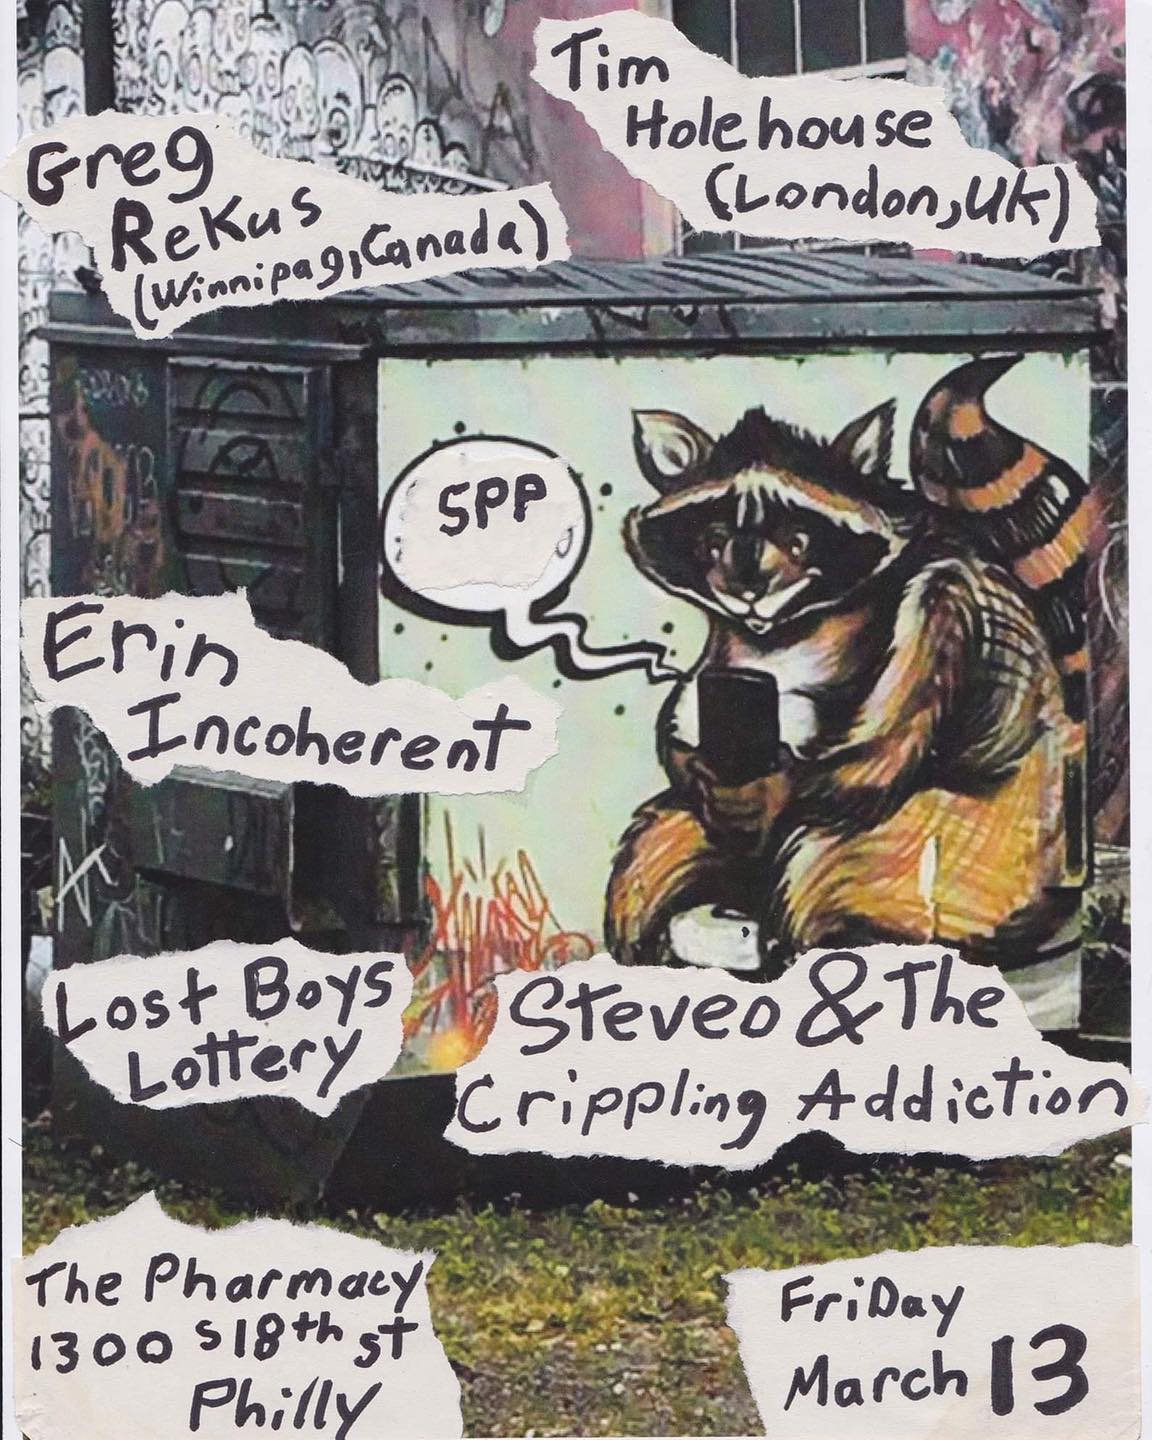 Tim
Holehouse
(London, UK)
Greg
Rekus
(Winnipag, Canada)
SPP
Erin
Incoherent
Lost Boys
Lottery
Steveo & The
Crippling Addiction
The Pharmacy
1300 S 18th st
Philly
FriDay
March 13